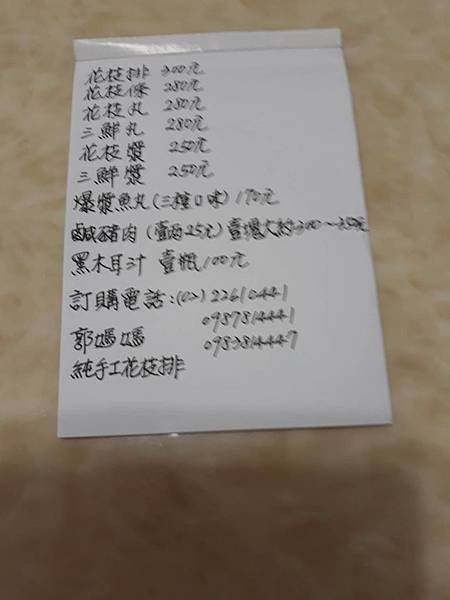 花枝排 300元
花枝條 280元
花枝丸 280元
三鮮丸 280元
花枝漿 250元
三鮮漿 250元
爆漿魚丸(三種口味) 170元
鹹豬肉 (壹兩25元) 壹塊大約300~350元
黑木耳汁 壹瓶100元
訂購電話:(02) 22610441
0987814441
郭媽媽 0983814447
純手工花枝排